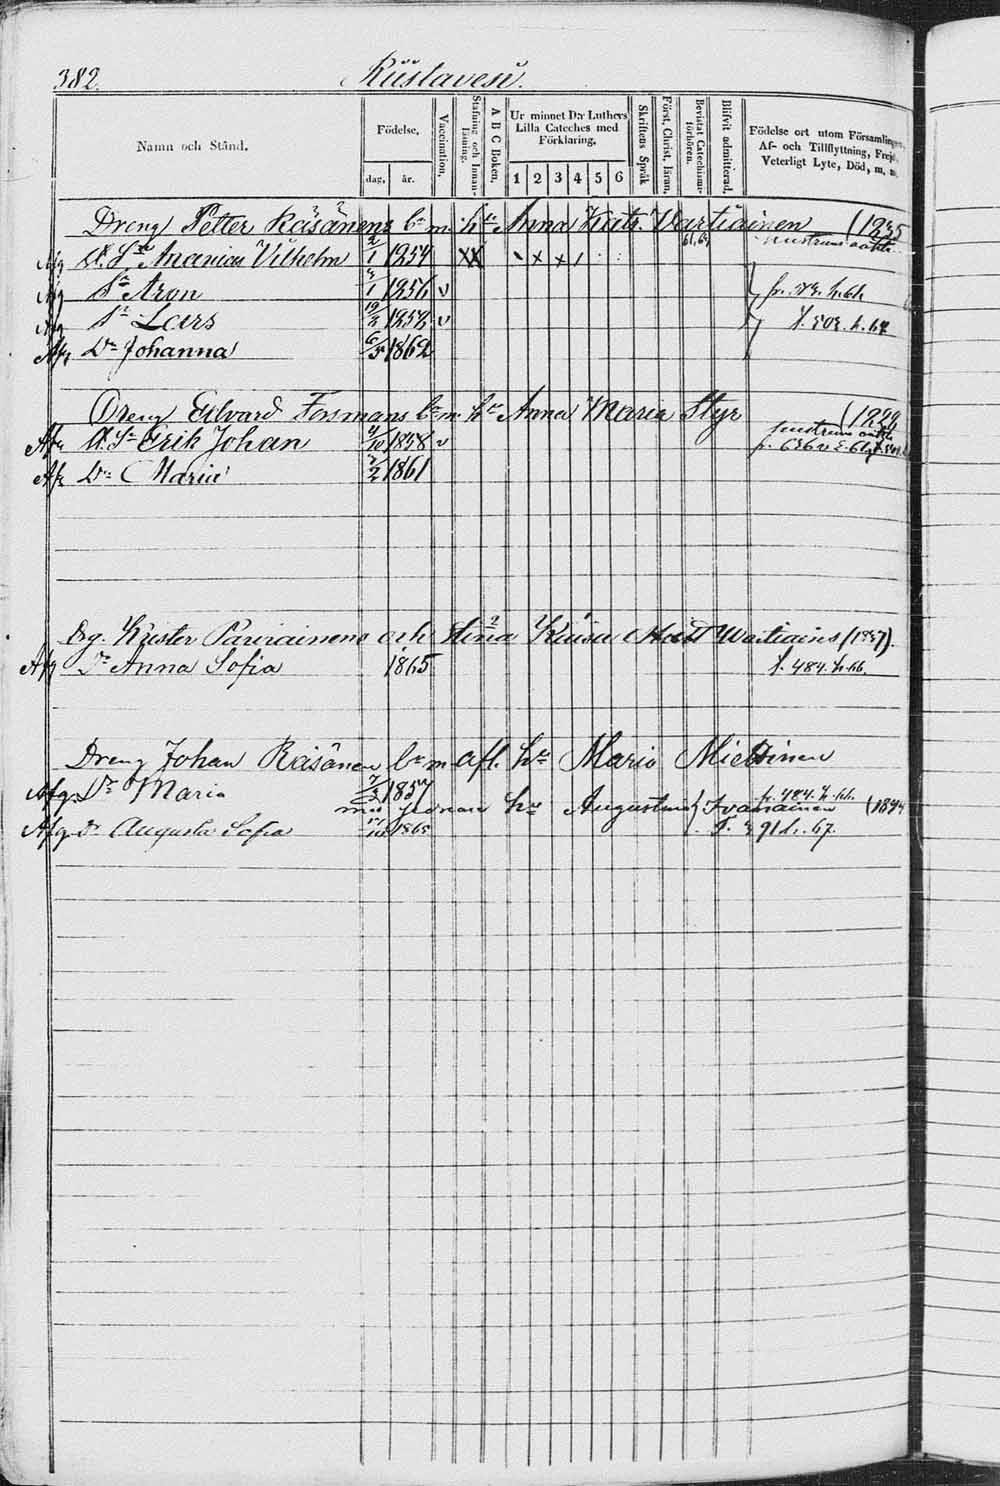 382.
Kuslavesi.
Namn och Stånd.
Födelse,
dag, år.
Vaccination,
Stafning och Innanläsning.
A B C Boken,
Ur minnet D:r Luthers Lilla Cateches med Förklaring,
1 2 3 4 5 6
Skriftens Språk
Först. Christ. läran,
Bevistat Catechismiförhören.
Blifvit admitterad,
Födelse ort utom Församlingen,
Af- och Tillflyttning, Frejd,
Veterligt Lyte, Död, m. m.
Dreng Petter Räsänens bn m. hu Anna Katr. Vartiainen (1835
Sn Ananias Vilhelm 1 1854 61, 63
Afg Sn Aron 1 1856 v
Afg Sn Lars 19/2 1858 v f. 503. h. 67
Afg Dr Johanna 6/5 1862
Dreng Edvard Forsmans bn m. hu Anna Maria Styr (1829
Afg Sn Erik Johan /10 1858 v
Afg Dr Maria 1861
Drg. Krister Parviainens och Stina Kaisa Vartiains (1837).
Afg Dr Anna Sofia 1865 f. 484. h. bb.
Dreng Johan Räsänen bn m afl. hu Maria Miettinen
Afg. Dr Maria 1857 f. 484. h. bb.
med hu Augustina Ivanainen (1844
Afg. Dr Augusta Sofia /10 1865 F. 391 h. 67.